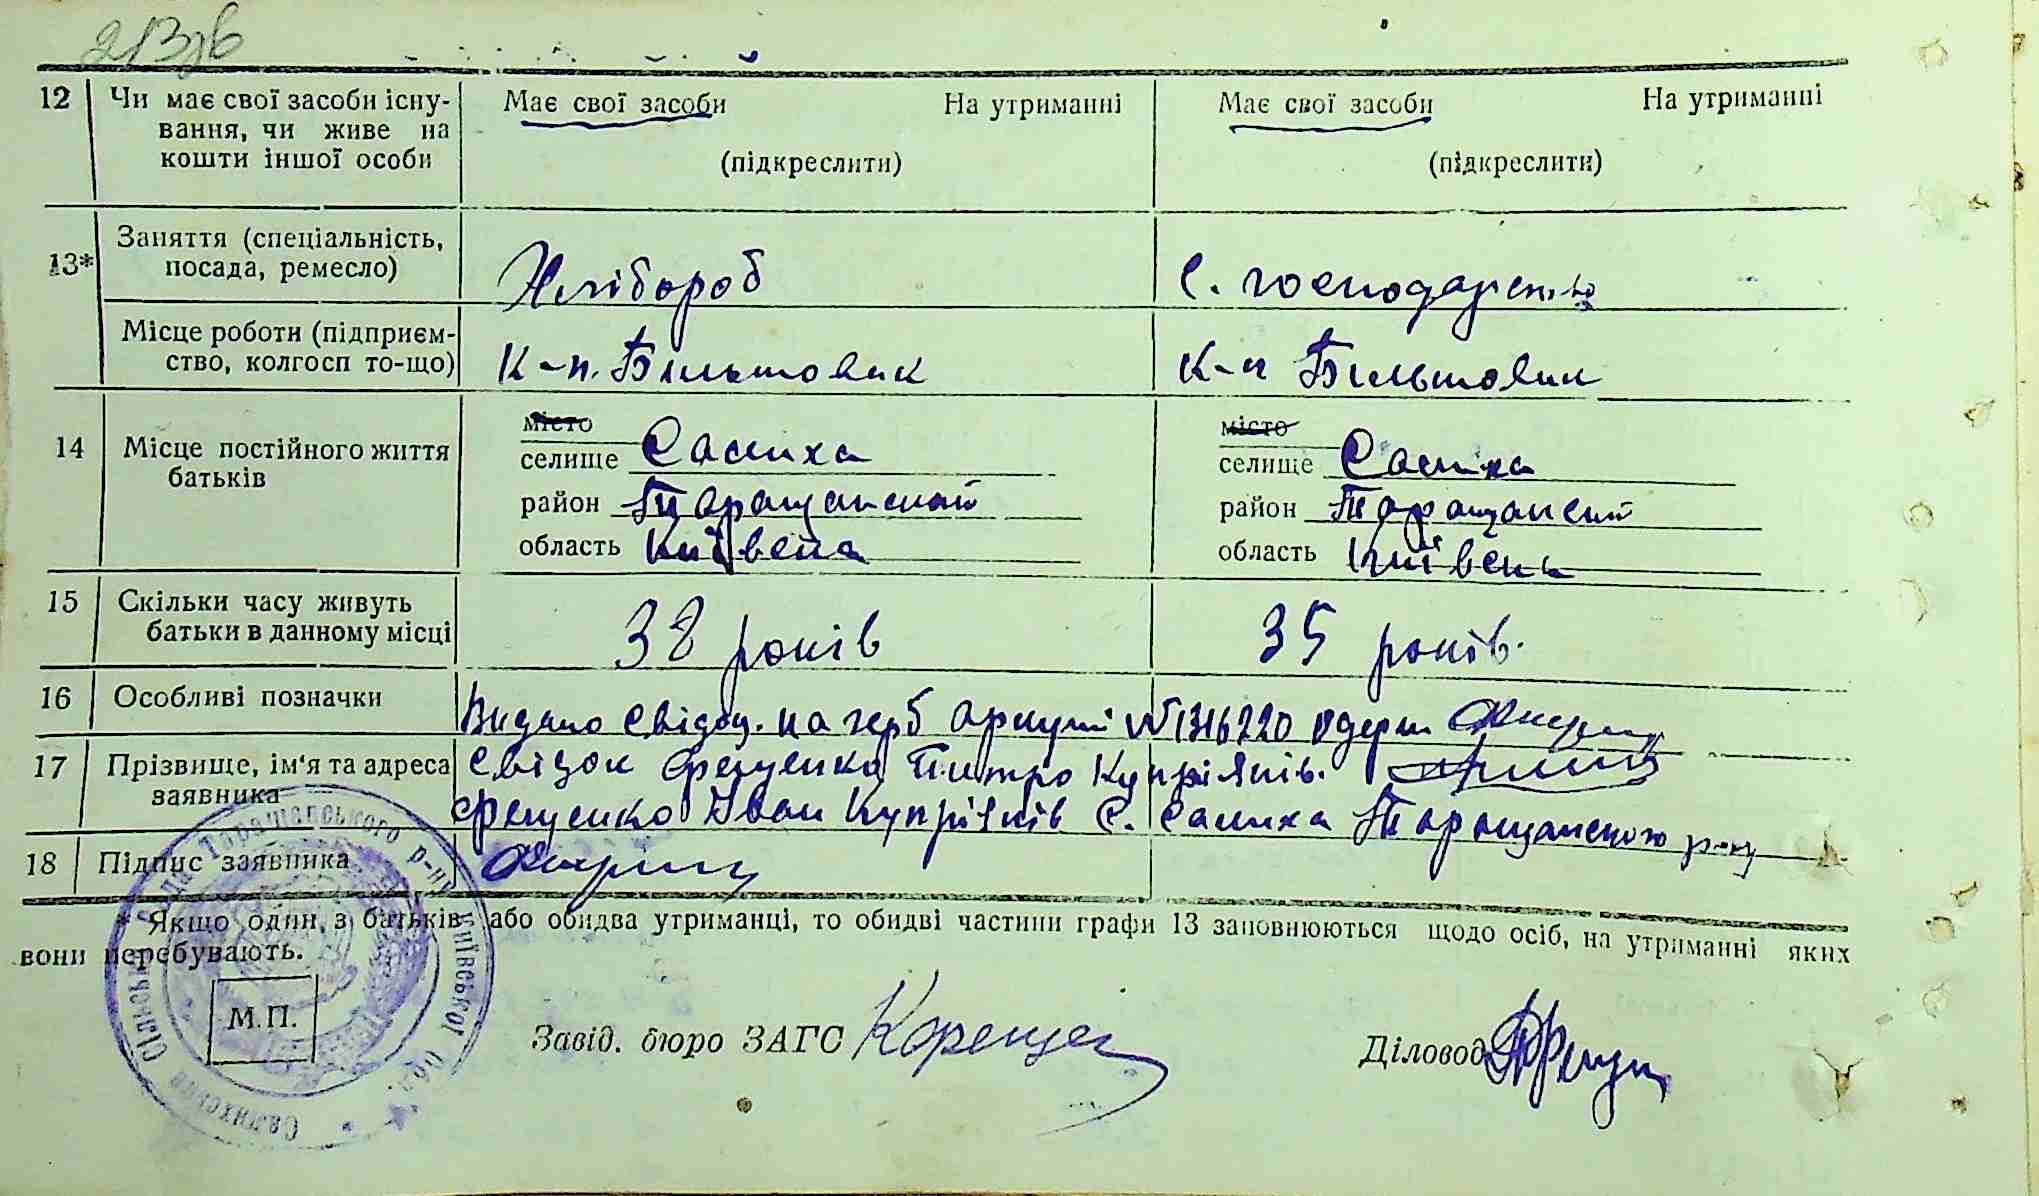 213зв
12 Чи має свої засоби існу- Має свої засоби На утриманні Має свої засоби На утриманні
вання, чи живе на
кошти іншої особи (підкреслити) (підкреслити)
13* Заняття (спеціальність,
посада, ремесло) Хлібороб С. господарство
Місце роботи (підприєм-
ство, колгосп то-що) К-п. Більшовик К-п Більшовик
14 Місце постійного життя
батьків
місто місто
селище Салиха селище Салиха
район Таращанский район Таращанский
область Київська область Київськ
15 Скільки часу живуть
батьки в данному місці 38 років 35 років.
16 Особливі позначки Видано свідоц. на герб аркуші № 1316220 Одерж
17 Прізвище, ім'я та адреса свідок Фещенко Питро Купріянів.
заявника Фещенко Іван Купріянів С. Салиха Таращанского р-ну
18 Підпис заявника
* Якщо один з батьків або обидва утриманці, то обидві частини графи 13 заповнюються щодо осіб, на утриманні яких
вони перебувають.
М.П.
Завід. бюро ЗАГС Діловод
Салихська Сільська Рада Таращанського р-ну Київської Обл.